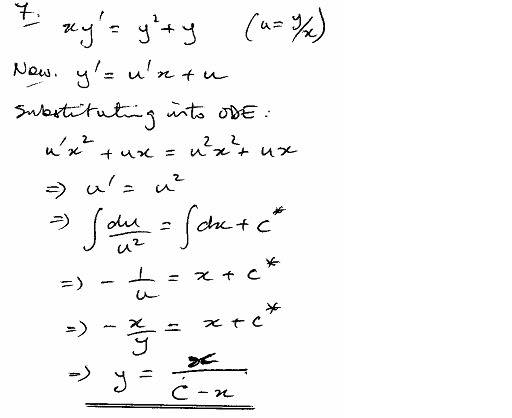 7. xy' = y² + y (u = y/x)
Now. y' = u'x + u
Substituting into ODE:
u'x² + ux = u²x² + ux
⇒ u' = u²
⇒ ∫ du/u² = ∫ dx + c*
⇒ - 1/u = x + c*
⇒ - x/y = x + c*
⇒ y = x/(c - x)